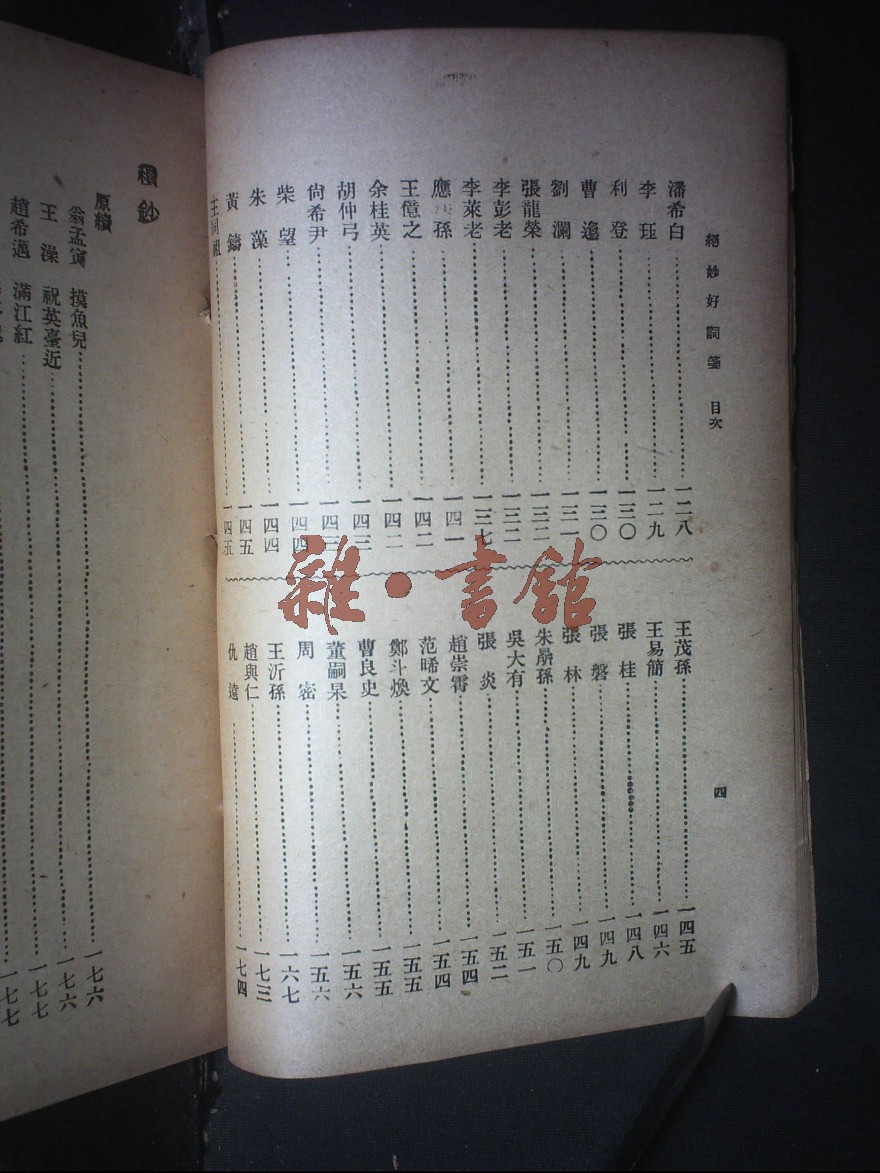 絕妙好詞箋　目次
四
潘希白……一二八
李珏……一二九
利登……一三〇
曹邍……一三〇
劉瀾……一三一
張龍榮……一三二
李彭老……一三二
李萊老……一三七
應孫……一四一
王億之……一四二
余桂英……一四二
胡仲弓……一四三
尙希尹……一四三
柴望……一四四
朱藻……一四四
黃鑄……一四五
王同祖……一四五
王茂孫……一四五
王易簡……一四六
張桂……一四八
張磐……一四九
張林……一四九
朱屌孫……一五〇
吳大有……一五一
張炎……一五二
趙崇霄……一五四
范晞文……一五四
鄭斗煥……一五五
曹良史……一五五
董嗣杲……一五六
周密……一五六
王沂孫……一六七
趙與仁……一七三
仇遠……一七四
續鈔
原續
翁孟寅　摸魚兒……一七六
王澡　祝英臺近……一七六
趙希邁　滿江紅……一七七
一七七
雜·書館